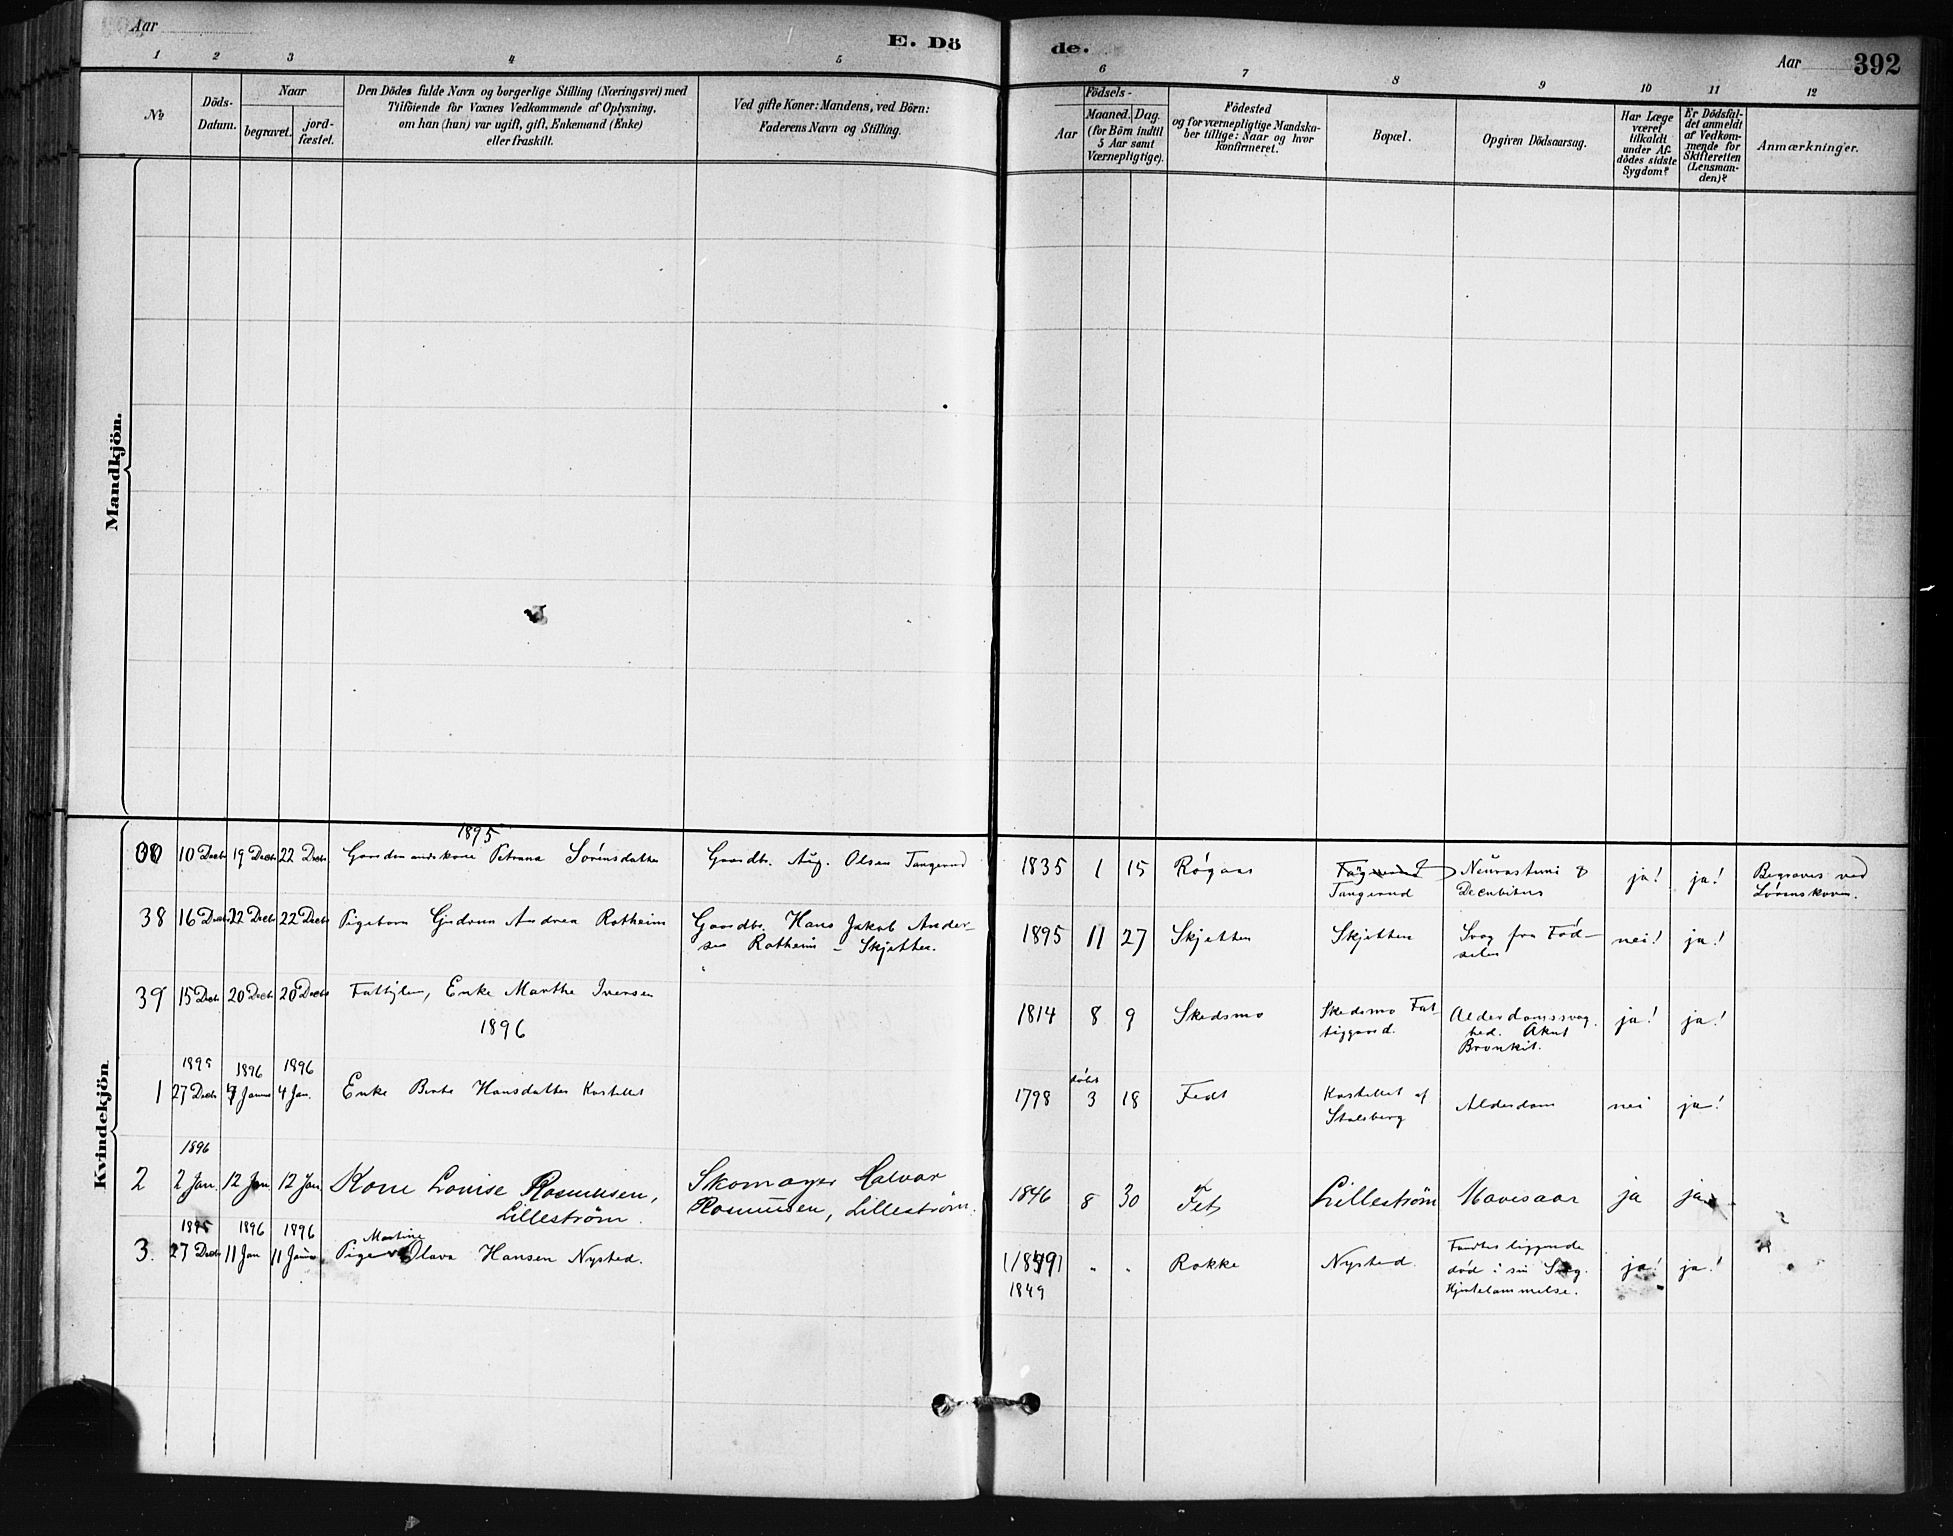 Aar
E. Dö
de.
Aar
392
1 2 3 4 5 6 7 8 9 10 11 12
No
Döds-
Datum.
Naar
begravet.
jord-
fæstet.
Den Dödes fulde Navn og borgerlige Stilling (Næringsvei) med
Tilföiende for Voxnes Vedkommende af Oplysning,
om han (hun) var ugift, gift, Enkemand (Enke)
eller fraskilt.
Ved gifte Koner: Mandens, ved Börn:
Faderens Navn og Stilling.
Födsels-
Aar
Maaned. Dag.
(for Börn indtil
5 Aar samt
Værnepligtige).
Födested
og for værnepligtige Mandska-
ber tillige: Naar og hvor
konfirmeret.
Bopæl.
Opgiven Dödsaarsag.
Har Læge
været
tilkaldt
under Af-
dödes sidste
Sygdom?
Er Dödsfal-
det anmeldt
af Vedkom-
mende for
Skifteretten
(Lensman-
den)?
Anmærkninger.
Mandkjön.
Kvindekjön
1895
10 Decbr 19 Decbr 22 Decbr Gaardmandskone Petrana Sörensdatter Gaardbr. Aug. Olsen Tangerud 1835 1 15 Røgaas
Tangerud
Neurasteni &
Decubitus
ja! ja!
Begraves ved
Lørenskoven.
38 16 Decbr 22 Decbr 22 Decbr Pigebarn Gudrun Andrea Rotheim
Gaardbr. Hans Jakob Ander-
sen Rotheim – Skjetten.
1895 11 27 Skjetten Skjetten
Svag fra Fød-
selen
nei! ja!
39 15 Decbr 20 Decbr 20 Decbr Fattiglem, Enke Marthe Iversen
1814 8 9 Skedsmo
Skedsmo Fat-
tiggaard.
Alderdomssvag-
hed. Akut
Bronkit.
ja! ja!
1896
1895 1896 1896
1 27 Decbr 4 Januar 4 Jan. Enke Berte Hansdatter Kastellet
1798
døbt
3 18 Fedt
Kastellet af
Stalsberg
Alderdom nei ja!
1896
2 2 Jan. 12 Jan 12 Jan Kone Lovise Rasmussen,
Lilleström.
Skomager Halvor
Rasmussen, Lilleström.
1846 8 30 Fet Lilleström Mavesaar ja ja
1895 1896 1896
Martine
3. 27 Decbr 11 Jan 11 Januar Pige Olava Hansen Nysted.
1849
" " Rakke Nysted.
Fandtes liggende
død i sin Seng.
Hjertelammelse.
ja! ja!